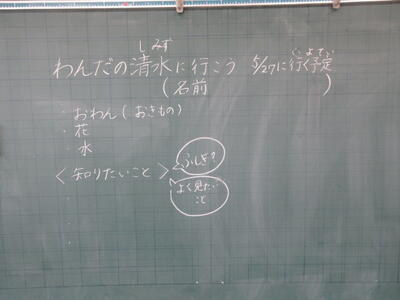 しみず
わんだの清水に行こう 5/27に行く予定
いくよてい
(名前 )
・おわん(おきもの)
・花
・水
<知りたいこと>
ふしぎ?
よく見たい
こと